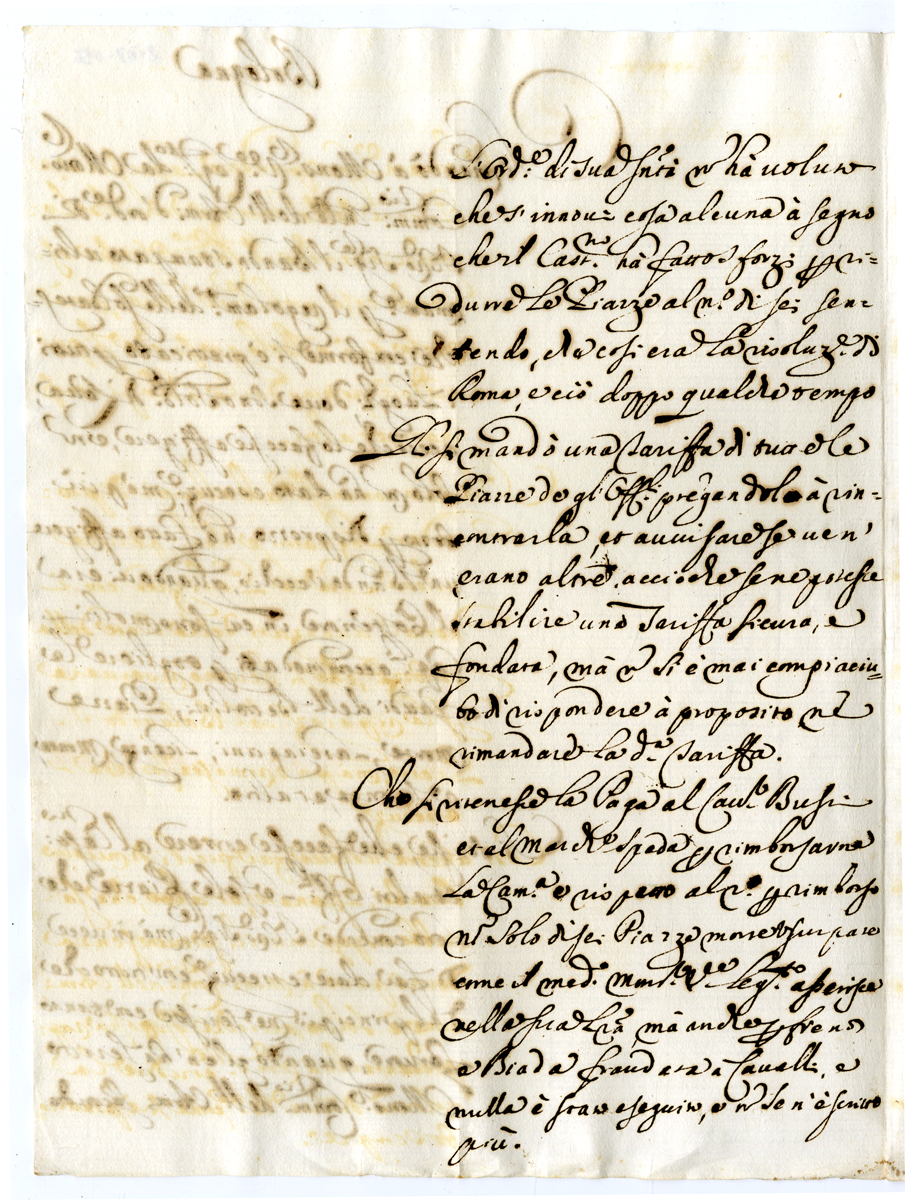 L'ord.e di Sua S.ntà n' hà voluto
che s'innoui cosa alcuna à segno
che il Cast.no hà fatto sforzi p ri-
durre le Piazze al n.o di sei sen-
tendo, che così era la risoluz.e di
Roma, e ciò doppo qualche tempo
Gli si mandò una tariffa di tutte le
Piazze de gl'Off.li pregandolo à rin-
contrarla, et auuisare se ue n'
erano altre, acciò che se ne potesse
stabilire una Tariffa sicura, e
fondata, mà n' si è mai compiaciu-
to di rispondere à proposito, nè
rimandare la d.a tariffa.
Che si ritenesse la Paga al Cau.re Bussi
et al March.e Spada p rimborsarne
la Cam.a e rispetto al p.o p rimborso
n' solo di sei Piazze morte usurpate
come il med.o Mons.r V.e Leg.to asserisce
nella sua l.ra, mà anche p fieno
e Biada fraudata à Caualli, e
nulla è stato eseguito, e n' se n'è scritto
più.